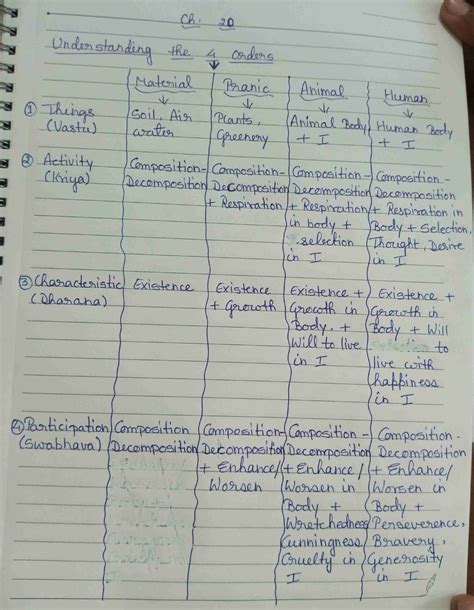 Ch. 20
Understanding the 4 orders
Material Pranic Animal Human
① Things Soil, Air Plants, Animal Body Human Body
(Vastu) water Greenery + I + I
② Activity Composition- Composition- Composition- Composition-
(Kriya) Decomposition Decomposition Decomposition Decomposition
+ Respiration + Respiration + Respiration in
in body + Body + Selection,
selection Thought, Desire
in I in I
③ Characteristic Existence Existence Existence + Existence +
(Dharana) + Growth Growth in Growth in
Body + Body + Will
Will to live to
in I live with
happiness
in I
④ Participation Composition Composition- Composition- Composition-
(Swabhava) Decomposition Decomposition Decomposition Decomposition
+ Enhance/ + Enhance/ + Enhance/
Worsen Worsen in Worsen in
Body + Body +
Wretchedness Perseverence,
Cunningness Bravery,
Cruelty in Generosity
I in I